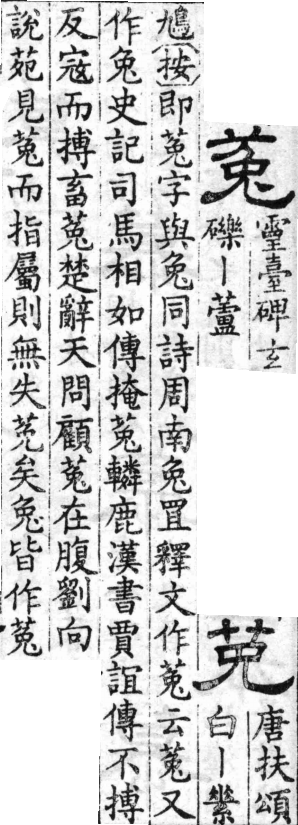 菟
靈臺碑玄
礫丨蘆
莵
唐扶頌
白丨樂
鳩按即菟字與兔同詩周南兔罝釋文作菟云菟又
作兔史記司馬相如傳掩菟轔鹿漢書賈誼傳不搏
反寇而搏畜菟楚辭天問顧菟在腹劉向
說苑見菟而指屬則無失莵矣兔皆作菟